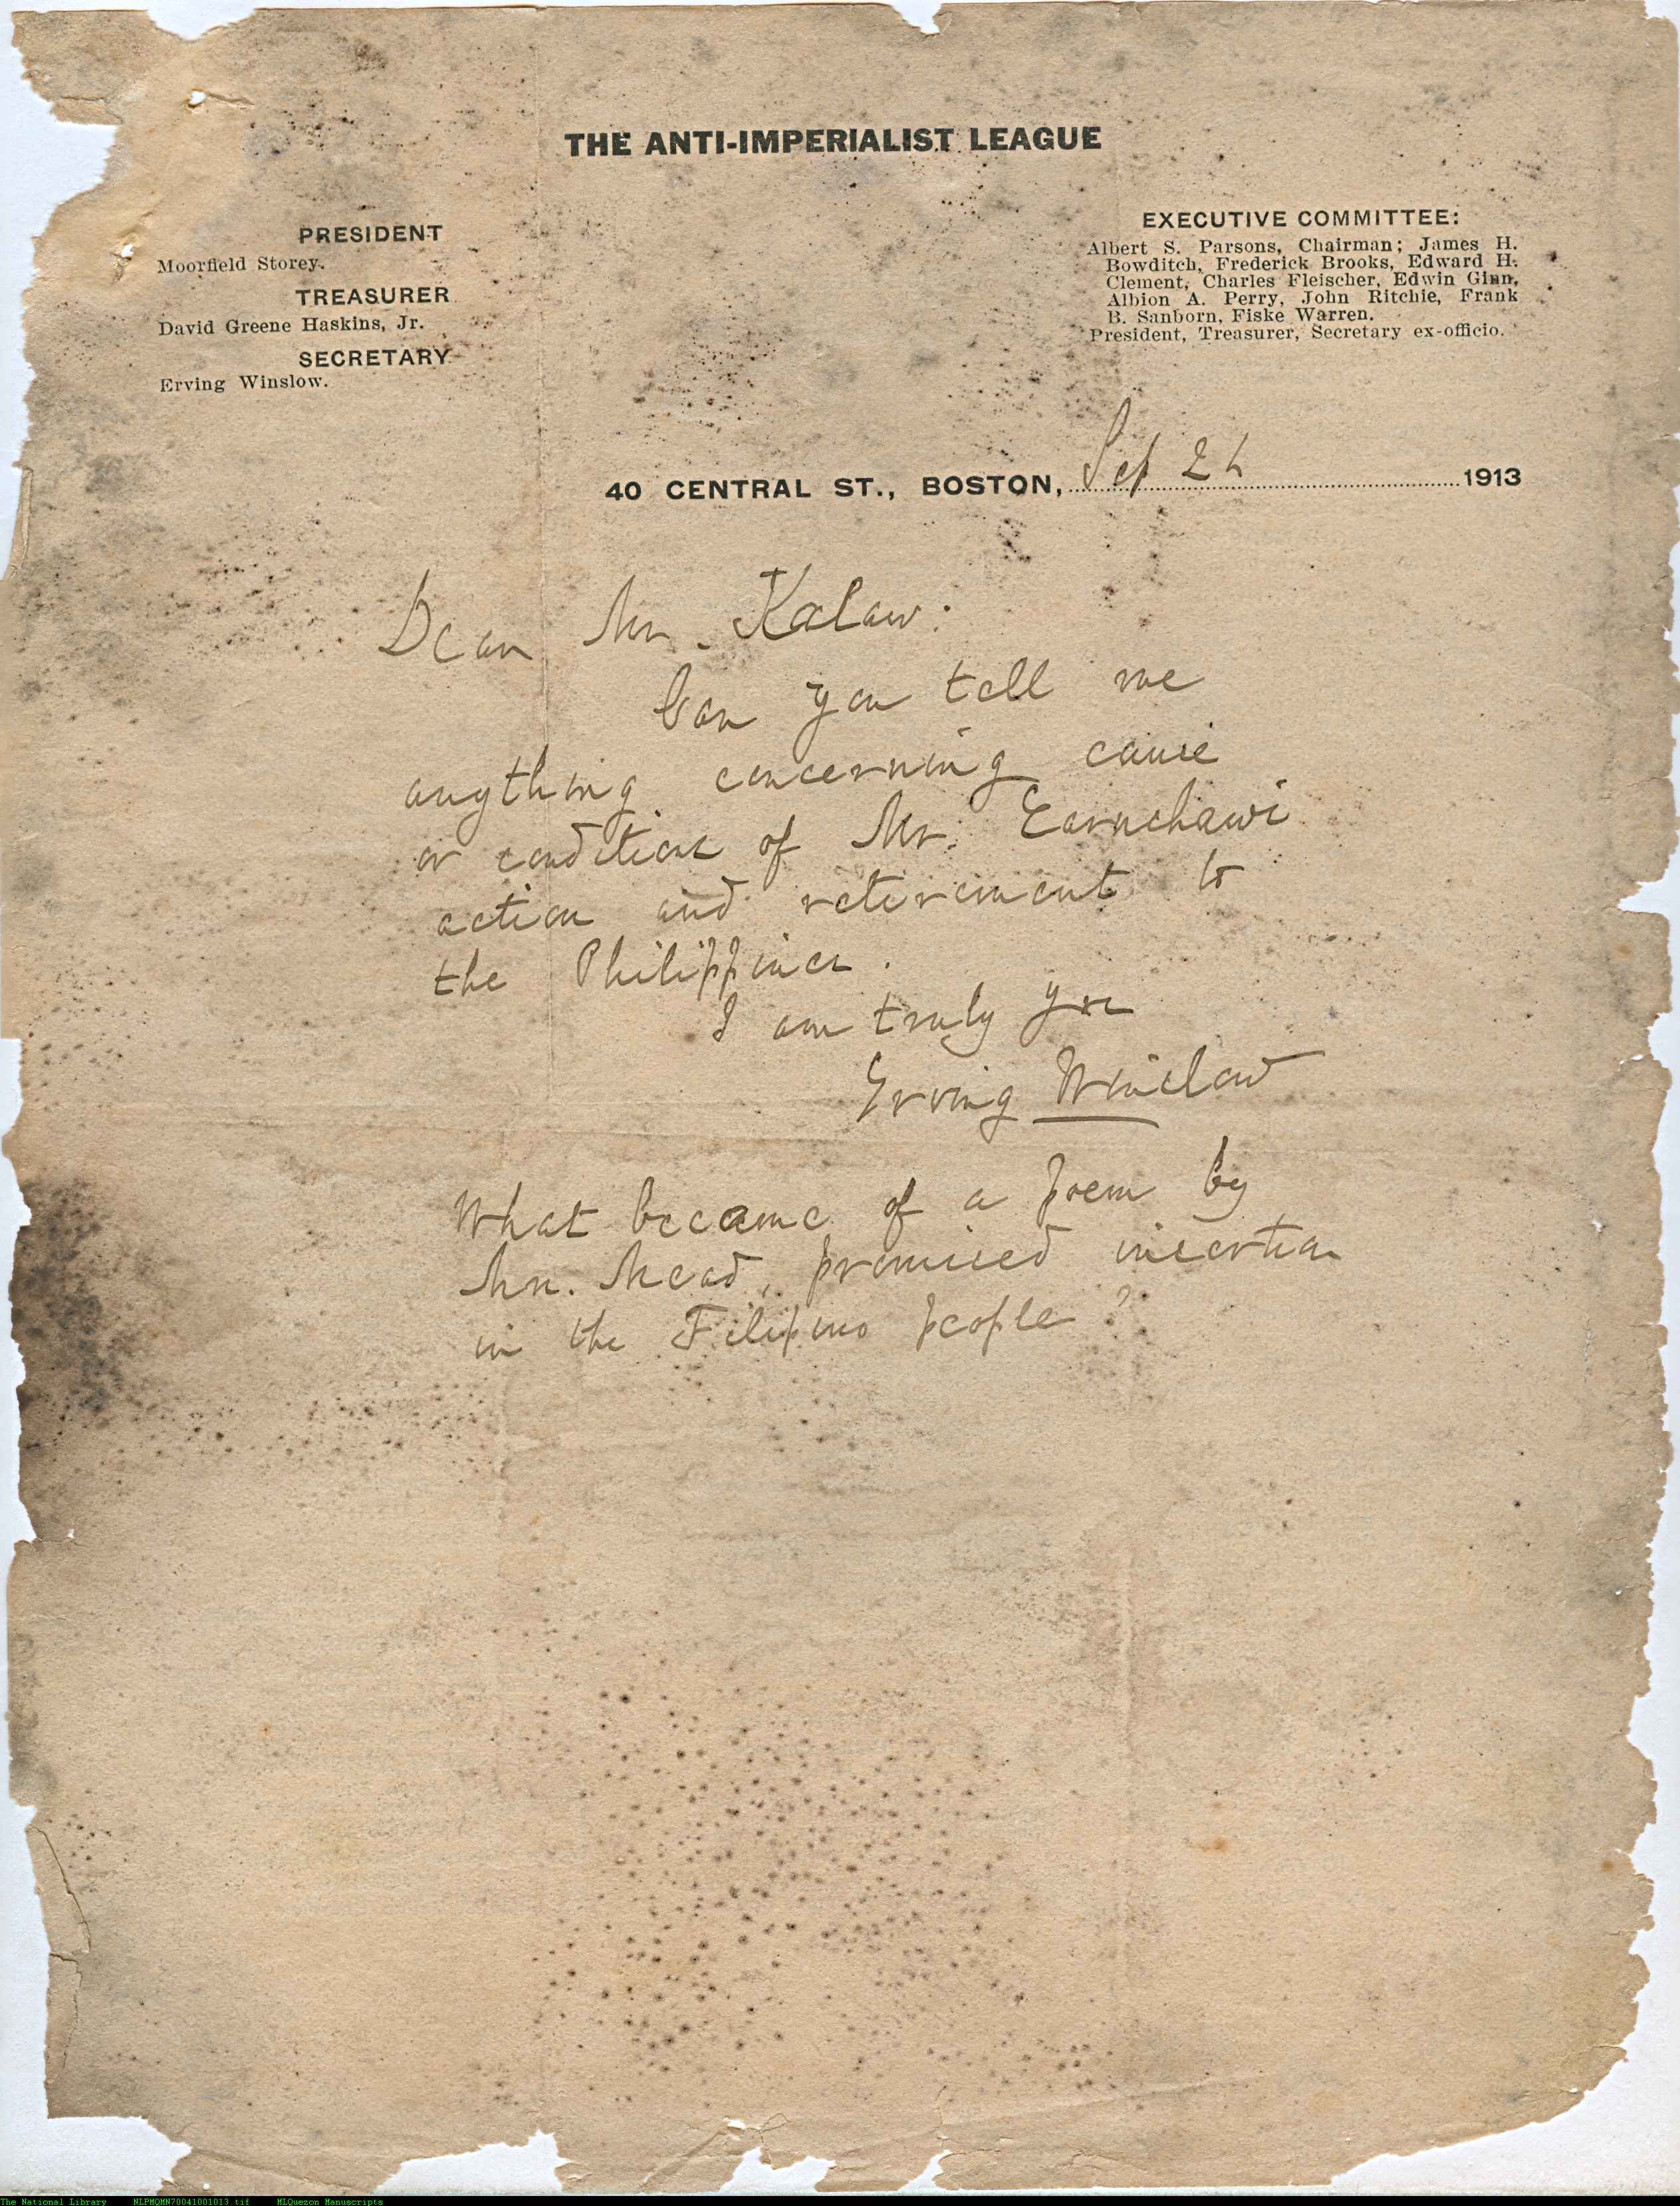 THE ANTI-IMPERIALIST LEAGUE
PRESIDENT
Moorfield Storey.
TREASURER
David Greene Haskins, Jr.
SECRETARY
Erving Winslow.
EXECUTIVE COMMITTEE:
Albert S. Parsons, Chairman; James H.
Bowditch, Frederick Brooks, Edward H.
Clement, Charles Fleischer, Edwin Ginn,
Albion A. Perry, John Ritchie, Frank
B. Sanborn, Fiske Warren.
President, Treasurer, Secretary ex-officio.
40 CENTRAL ST., BOSTON, Sep 1913
Dear Mr. Kalaw:
Can you tell me
anything concerning cause
or condition of Mr. Earnshaws
action and retirement to
the Philippines.
I am truly yrs
Erving Winslow
What became of a poem by
Mead, promised insertion
in the Filipino people?
The National Library NLPMQMN70041001013.tif MLQuezon Manuscripts